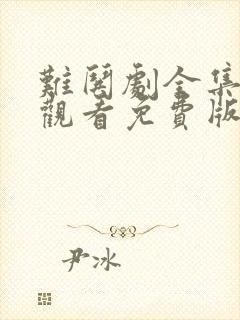 難閱劇全集
觀看免費版
尹冰